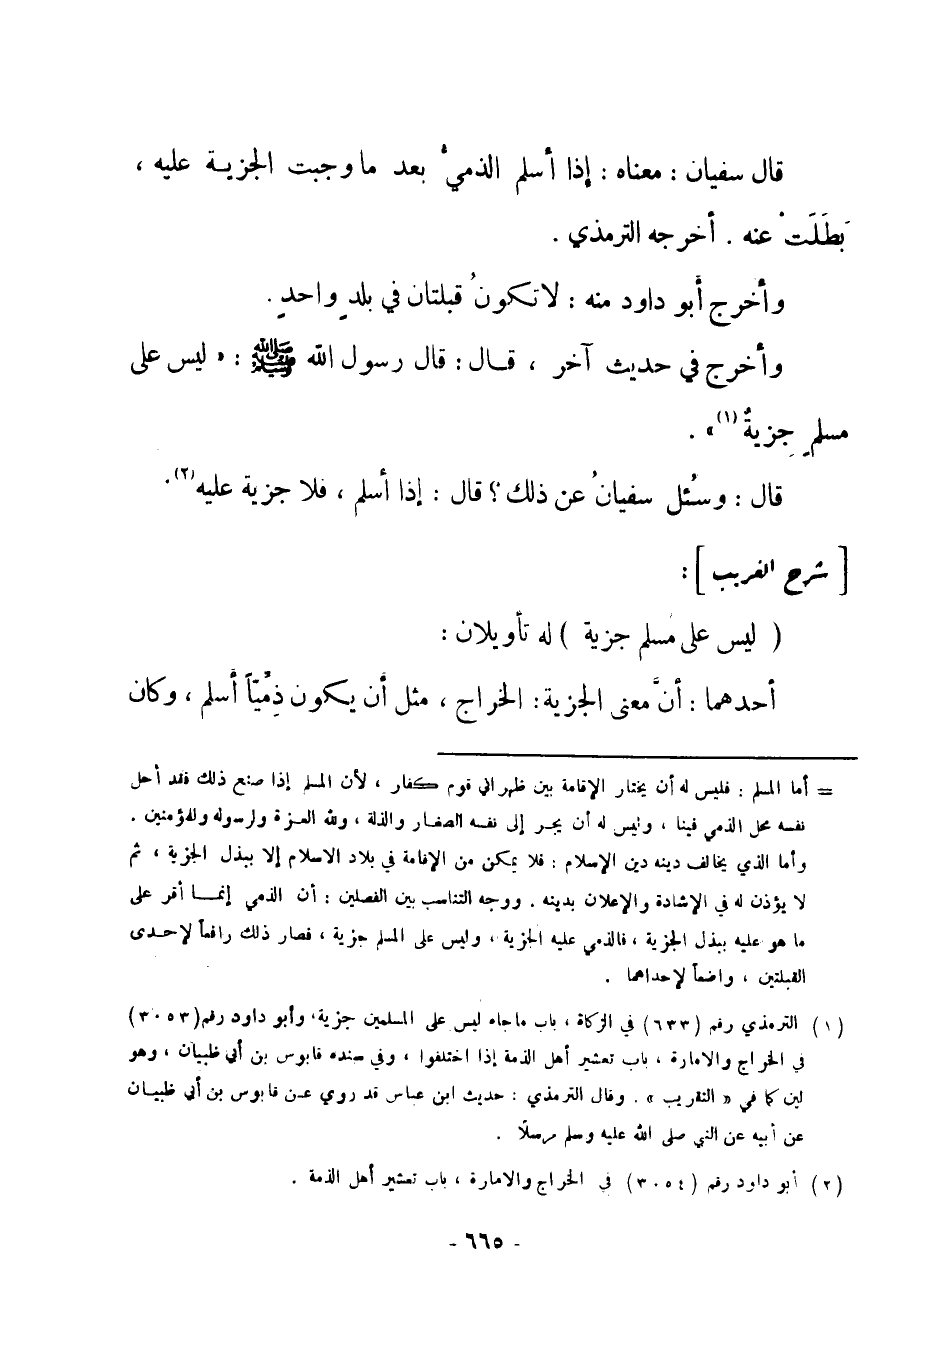 قال سفيان : معناه : إذا أسلم الذميُّ بعد ما وجبت الجزيــة عليه ،
بَطَلَتْ عنه . أخرجه الترمذي .
وأخرج أبو داود منه : لا تكونُ قبلتان في بلدٍ واحدٍ .
وأخرج في حديث آخر ، قــال : قال رسول الله ﷺ : « ليس على
مسلمٍ جِزيةٌ (١)» .
قال : وسُئل سفيانُ عن ذلك ؟ قال : إذا أسلم ، فلا جزية عليه (٢) .
[ شرح الغريب ] :
( ليس على مُسلم جزية ) له تأويلان :
أحدهما : أنَّ معنى الجزية : الخراج ، مثل أن يكون ذِمِّيّاً أسلم ، وكان
= أما المسلم : فليس له أن يختار الإقامة بين ظهراني قوم كفار ، لأن المسلم إذا صنع ذلك فقد أحل
نفسه محل الذمي فينا ، وليس له أن يجر إلى نفسه الصغار والذلة ، ولله العزة ولرسوله وللمؤمنين .
وأما الذي يخالف دينه دين الإسلام : فلا يمكن من الإقامة في بلاد الاسلام إلا ببذل الجزية ، ثم
لا يؤذن له في الإشادة والإعلان بدينه . ووجه التناسب بين الفصلين : أن الذمي إنمــا أقر على
ما هو عليه ببذل الجزية ، فالذمي عليه الجزية ، وليس على المسلم جزية ، فصار ذلك رافعاً لإحــدى
القبلتين ، واضعاً لإحداهما .
(١) الترمذي رقم (٦٣٣) في الزكاة ، باب ماجاء ليس على المسلمين جزية، وأبو داود رقم(٣٠٥٣)
في الخراج والامارة ، باب تعشير أهل الذمة إذا اختلفوا ، وفي سنده قابوس بن أبي ظبيان ، وهو
لين كما في « التقريب » . وقال الترمذي : حديث ابن عباس قد روي عــن قابوس بن أبي ظبيــان
عن أبيه عن النبي صلى الله عليه وسلم مرسلاً .
(٢) أبو داود رقم (٣٠٥٤) في الخراج والامارة ، باب تعشير أهل الذمة .
- ٦٦٥ -